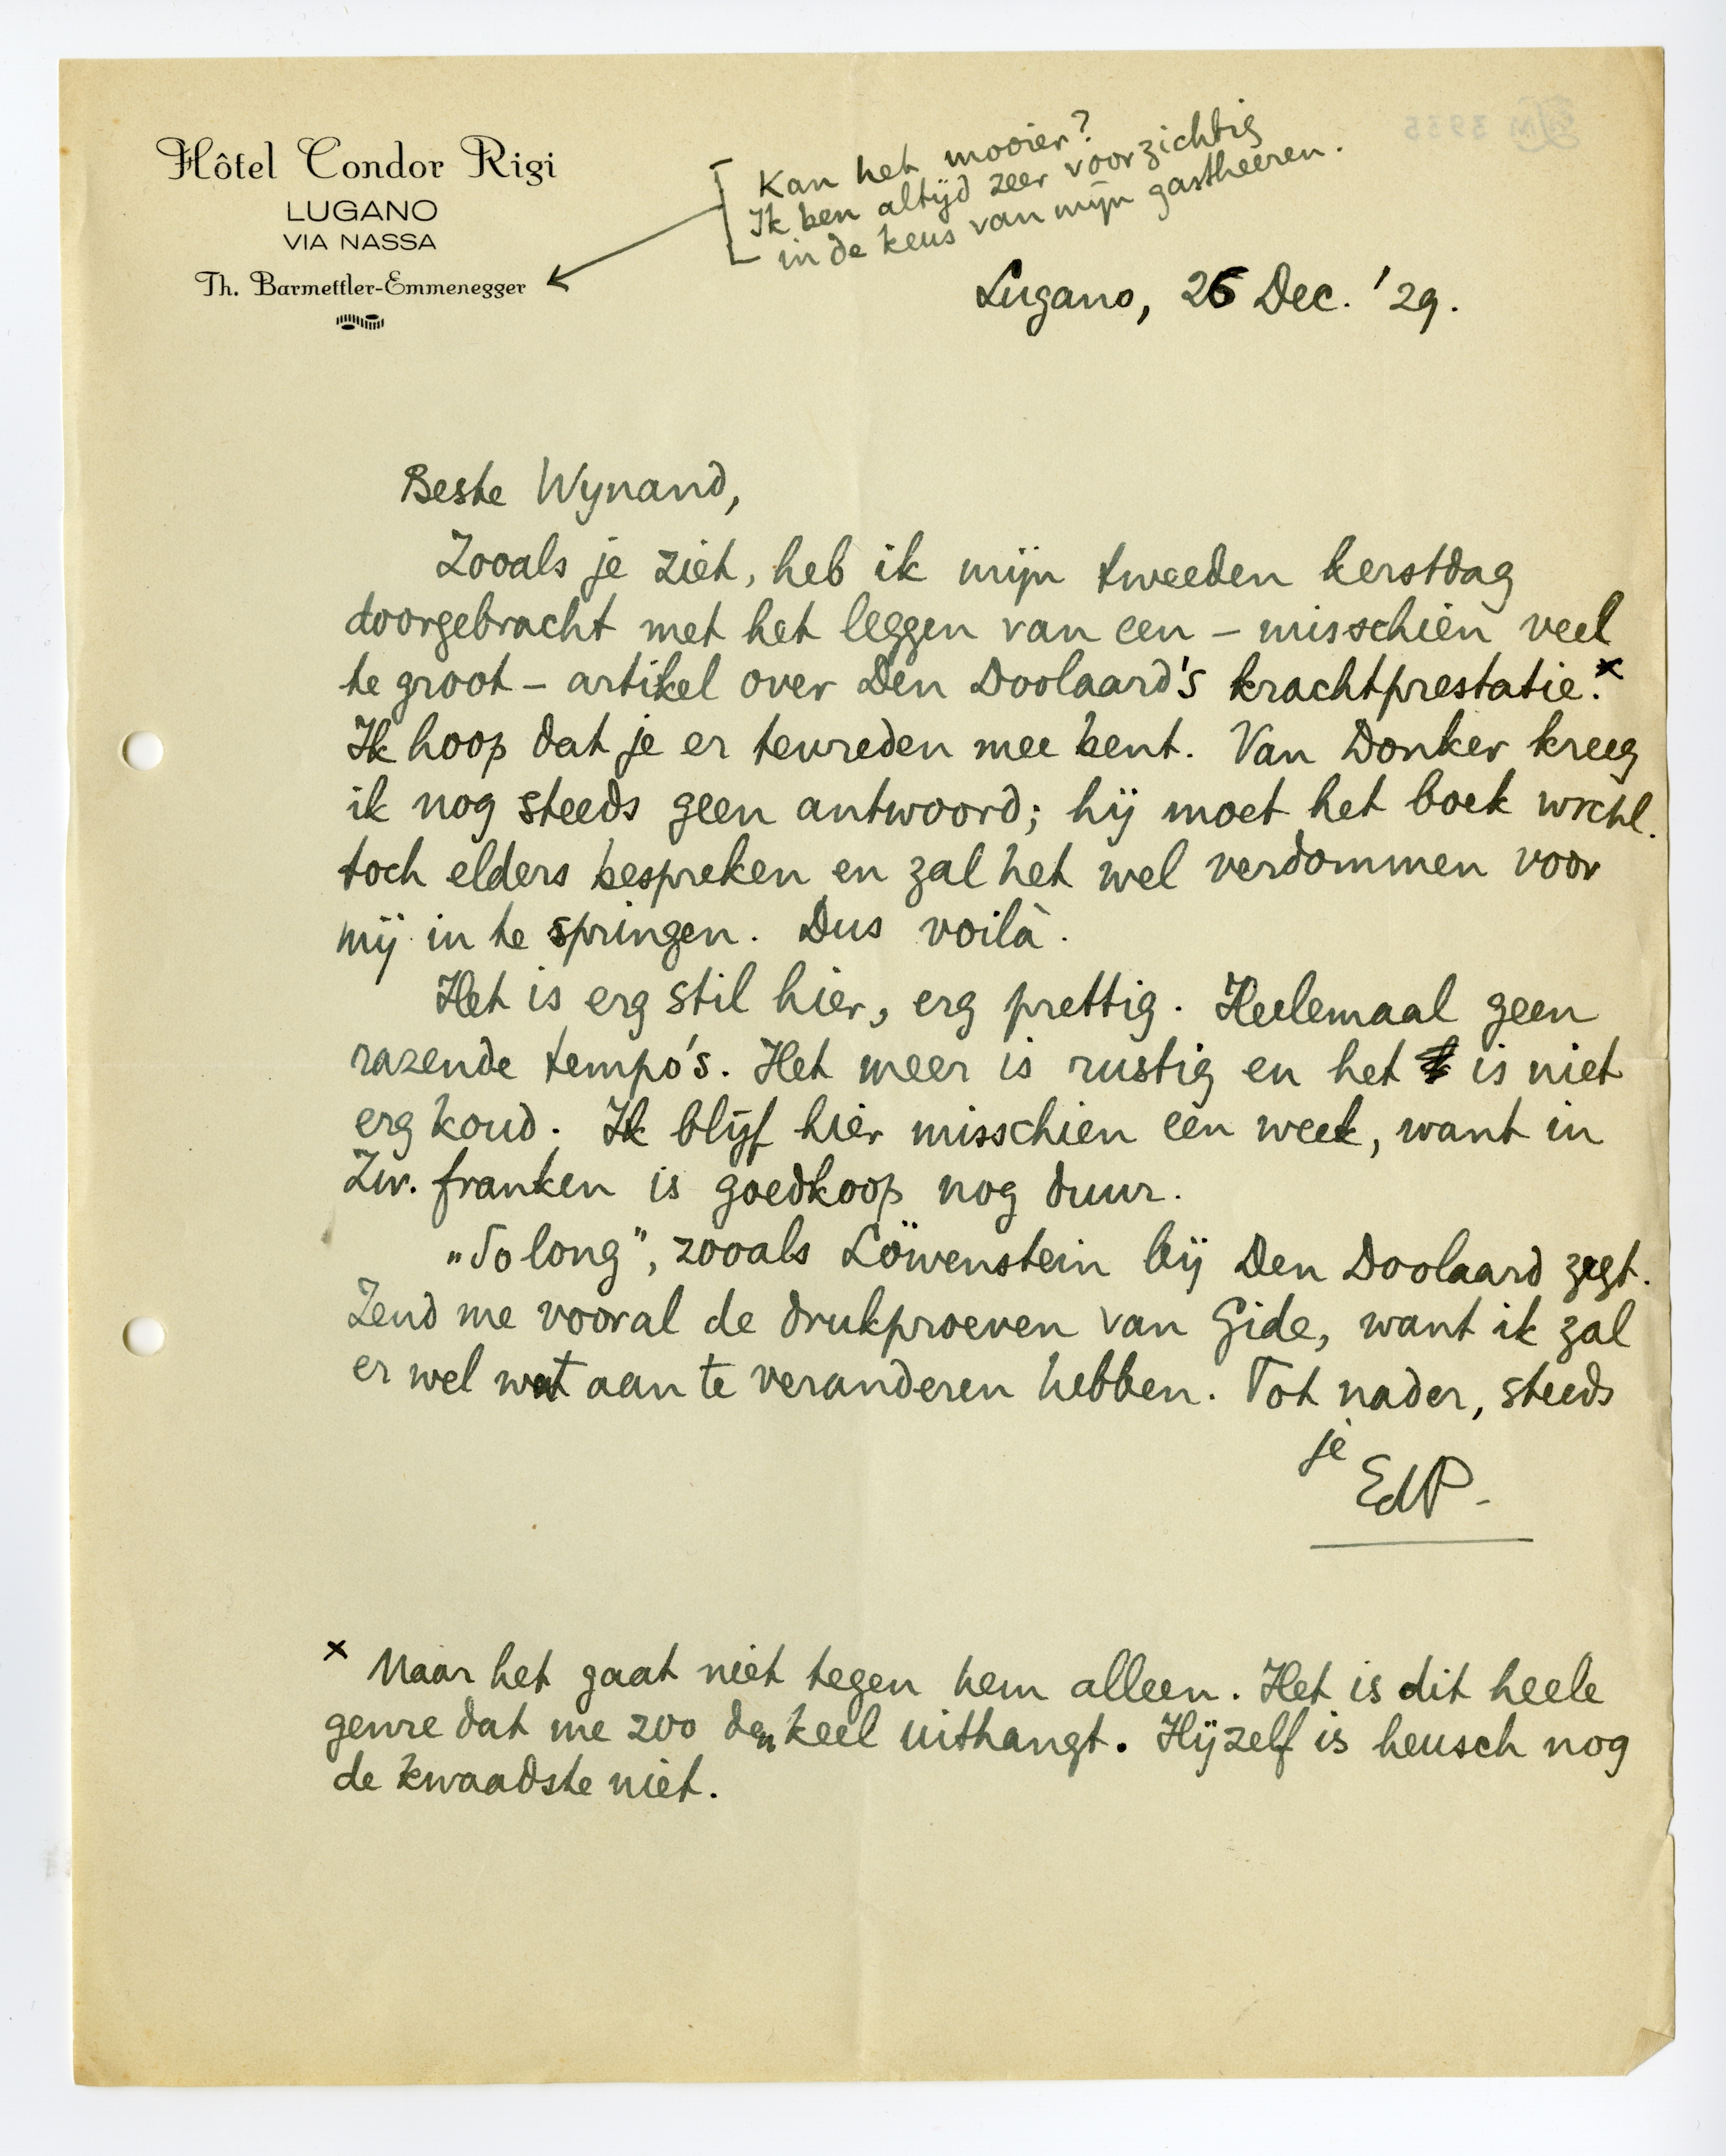 Hôtel Condor Rigi
LUGANO
VIA NASSA
Th. Barmettler-Emmenegger
Kan het mooier?
Ik ben altijd zeer voorzichtig
in de keus van mijn gastheeren.
Lugano, 26 Dec. '29.
Beste Wynand,
Zooals je ziet, heb ik mijn tweeden kerstdag
doorgebracht met het leggen van een – misschien veel
te groot – artikel over Den Doolaard's krachtprestatie.x
Ik hoop dat je er tevreden mee bent. Van Donker kreeg
ik nog steeds geen antwoord; hij moet het boek wrchl.
toch elders bespreken en zal het wel verdommen voor
mij in te springen. Dus voilà.
Het is erg stil hier, erg prettig. Heelemaal geen
razende tempo's. Het meer is rustig en het is niet
erg koud. Ik blijf hier misschien een week, want in
Zw. franken is goedkoop nog duur.
„So long", zooals Löwenstein bij Den Doolaard zegt.
Zend me vooral de drukproeven van Gide, want ik zal
er wel wat aan te veranderen hebben. Tot nader, steeds
je
EdP.
x Maar het gaat niet tegen hem alleen. Het is dit heele
genre dat me zoo den keel uithangt. Hijzelf is heusch nog
de kwaadste niet.